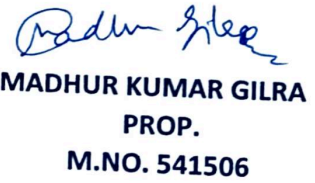 Madhur Gilra
MADHUR KUMAR GILRA
PROP.
M.NO. 541506